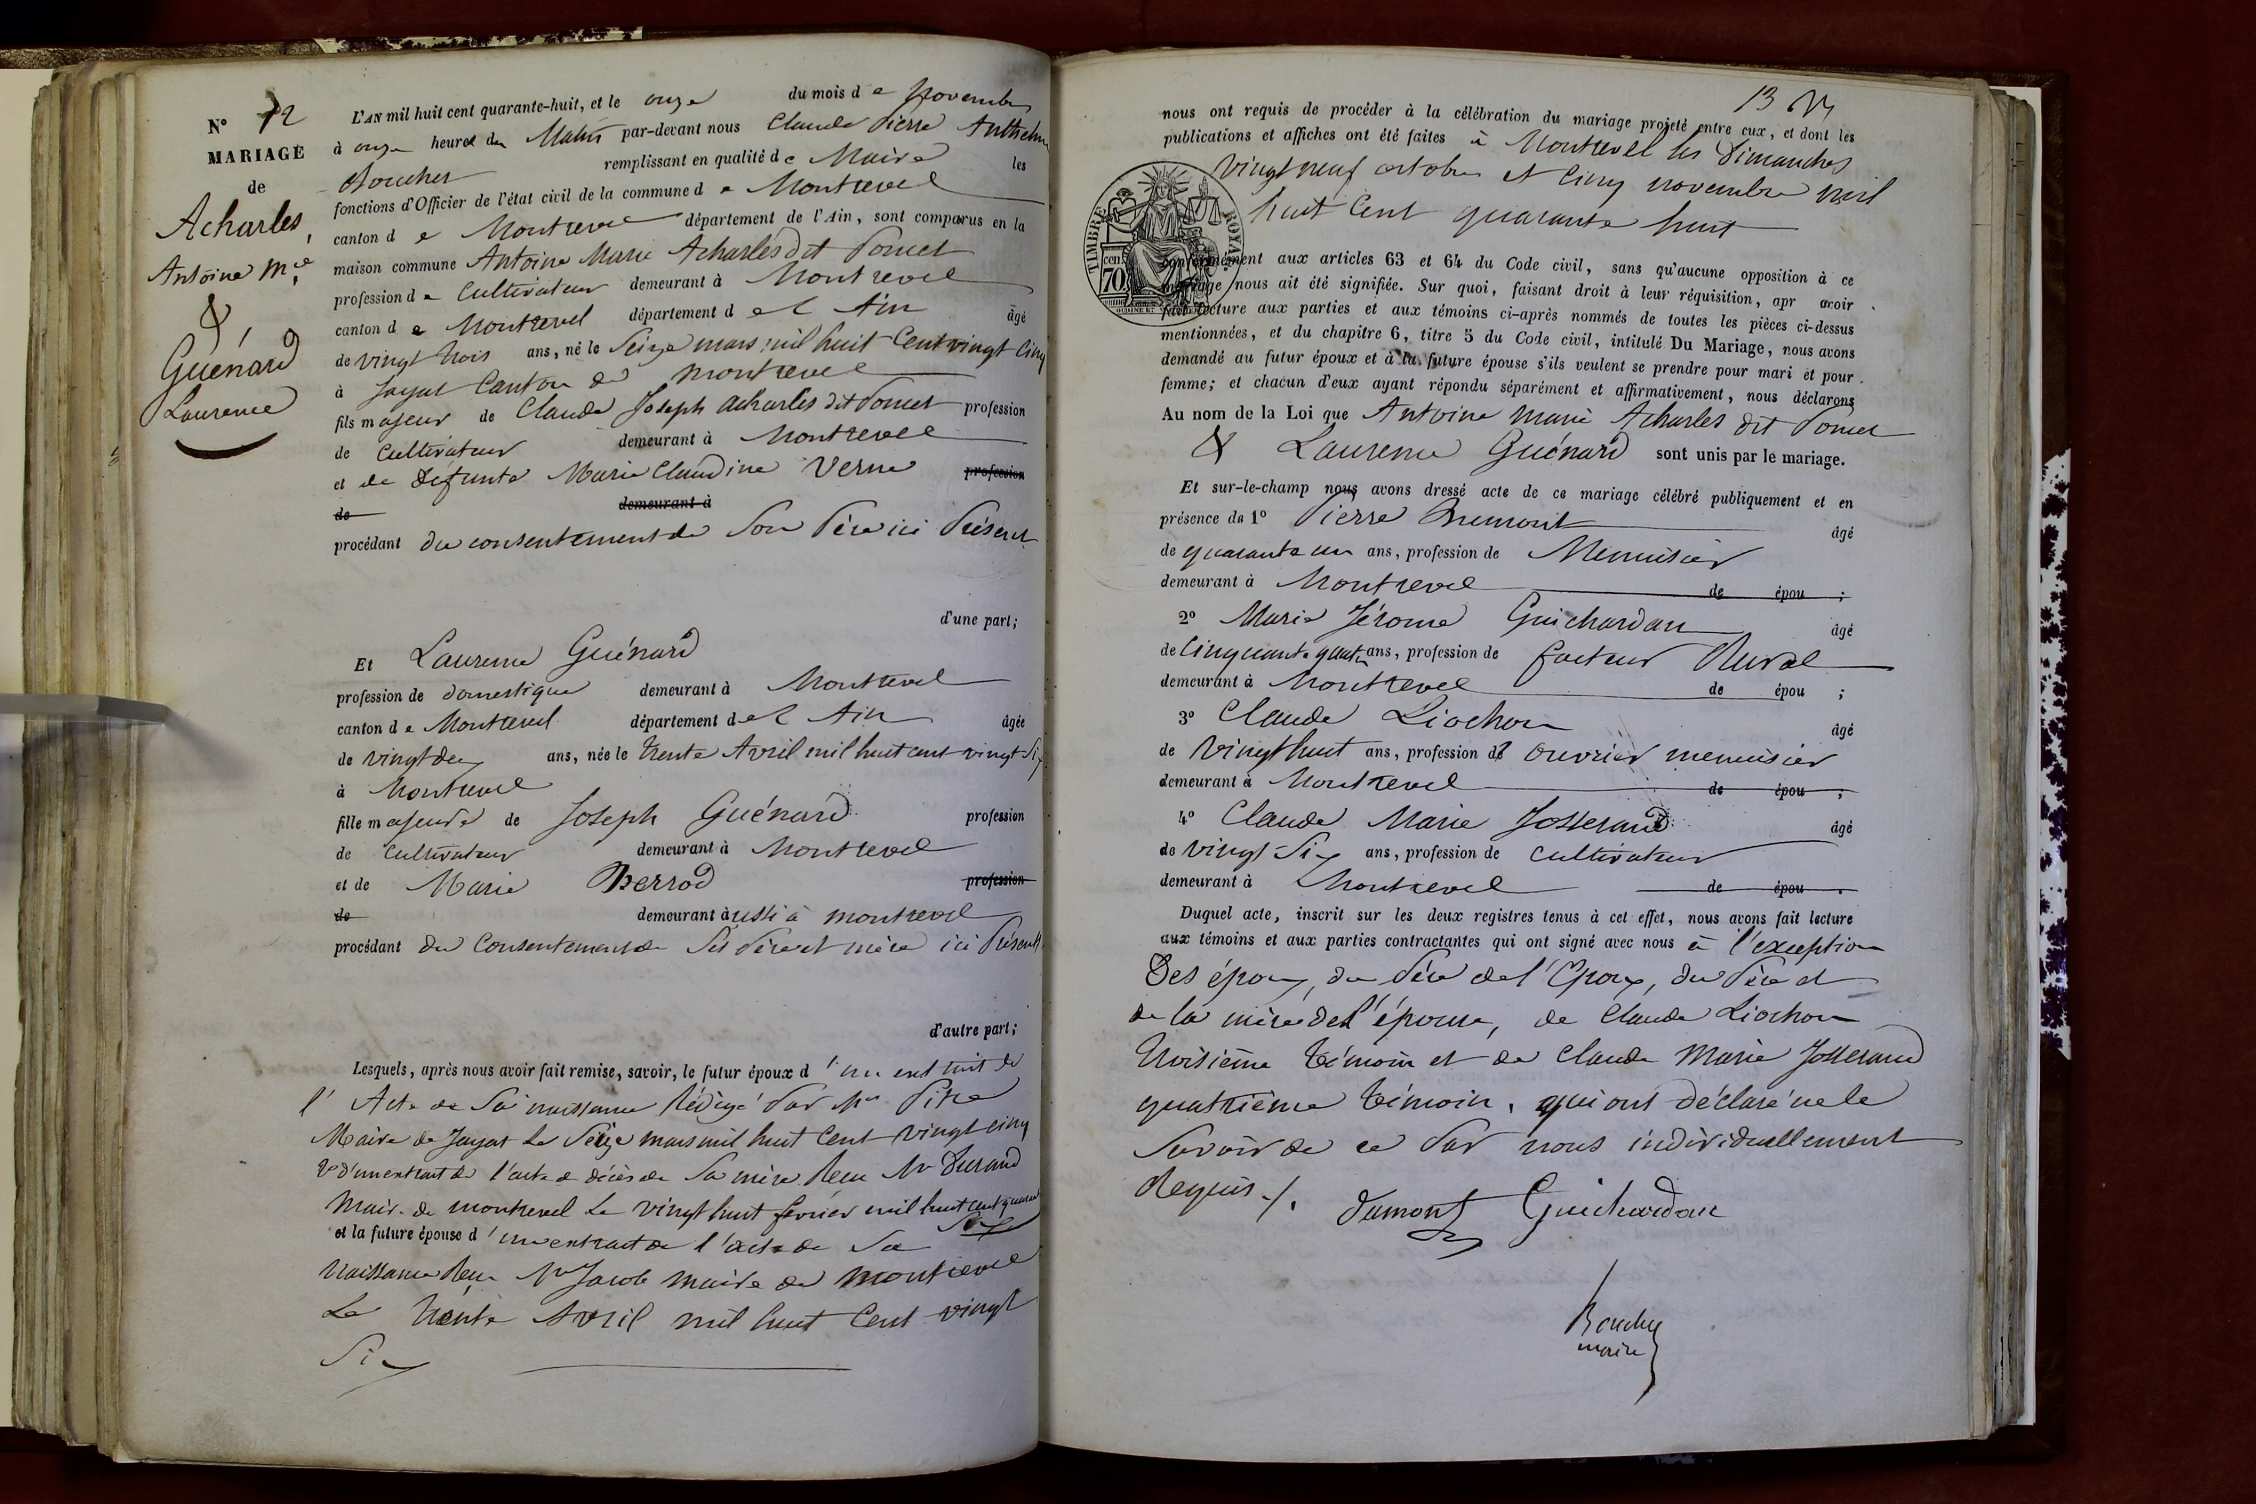 N° 12
MARIAGE
de
Acharles,
Antoine M.ie
&
Guénard
Laurence
L'AN mil huit cent quarante-huit, et le onze du mois de Novembre
à onze heures du Matin par-devant nous Claude Pierre Anthelme
Bouchez remplissant en qualité de Maire les
fonctions d'Officier de l'état civil de la commune de Montrevel
canton de Montrevel département de l'Ain, sont comparus en la
maison commune Antoine Marie Acharles dit Poncet
profession de Cultivateur demeurant à Montrevel
canton de Montrevel département de l'Ain âgé
de vingt trois ans, né le Seize mars mil huit Cent vingt Cinq
à Jayat Canton de Montrevel
fils majeur de Claude Joseph Acharles dit Poncet profession
de Cultivateur demeurant à Montrevel
et de Défunte Marie Claudine Verne profession
de demeurant à
procédant du consentement de Son Père ici Présent
d'une part;
Et Laurence Guénard
profession de domestique demeurant à Montrevel
canton de Montrevel département de l'Ain âgée
de vingt deux ans, née le trente Avril mil huit cent vingt Six
à Montrevel
fille majeure de Joseph Guénard profession
de Cultivateur demeurant à Montrevel
et de Marie Perrod profession
de demeurant aussi à montrevel
procédant du Consentement de Ses Père et mère ici Présents
d'autre part;
Lesquels, après nous avoir fait remise, savoir, le futur époux d'un extrait de
l'Acte de Sa naissance Rédigé Par Mr Pitre
Maire de Jayat Le Seize mars mil huit Cent vingt cinq
2° d'un extrait de l'acte de décès de Sa mère Reçu Mr Durand
Maire de montrevel Le vingt huit février mil huit cent quarante
Six
et la future épouse d'un extrait de l'acte de Sa
Naissance Reçu Mr Jacob Maire de Montrevel
Le trente Avril mil huit Cent vingt
Six
13
nous ont requis de procéder à la célébration du mariage projeté entre eux, et dont les
publications et affiches ont été faites à Montrevel les Dimanches
vingt neuf octobre et Cinq novembre mil
huit Cent quarante huit
TIMBRE ROYAL
70 cen.
conformément aux articles 63 et 64 du Code civil, sans qu'aucune opposition à ce
mariage nous ait été signifiée. Sur quoi, faisant droit à leur réquisition, apr avoir
fait lecture aux parties et aux témoins ci-après nommés de toutes les pièces ci-dessus
mentionnées, et du chapitre 6, titre 5 du Code civil, intitulé Du Mariage, nous avons
demandé au futur époux et à la future épouse s'ils veulent se prendre pour mari et pour
femme; et chacun d'eux ayant répondu séparément et affirmativement, nous déclarons
Au nom de la Loi que Antoine Marie Acharles dit Poncet
& Laurence Guénard sont unis par le mariage.
Et sur-le-champ nous avons dressé acte de ce mariage célébré publiquement et en
présence de 1° Pierre Dumont âgé
de quarante un ans, profession de Menuisier
demeurant à Montrevel de épou ;
2° Marie Jérome Guichardan âgé
de Cinquante quatre ans, profession de facteur Rural
demeurant à Montrevel de épou ;
3° Claude Liochon âgé
de vingt huit ans, profession de ouvrier menuisier
demeurant à Montrevel de épou ;
4° Claude Marie Josserand âgé
de vingt Six ans, profession de cultivateur
demeurant à Montrevel de épou .
Duquel acte, inscrit sur les deux registres tenus à cet effet, nous avons fait lecture
aux témoins et aux parties contractantes qui ont signé avec nous à l'exception
Des époux, du Père de l'Epoux, du Père et
de la mère de l'épouse, de Claude Liochon
troisième témoin et de Claude Marie Josserand
quatrième témoin, qui ont déclaré ne le
Savoir de ce Par nous individuellement
Requis ./.
Dumont Guichardan
Bouchez
maire